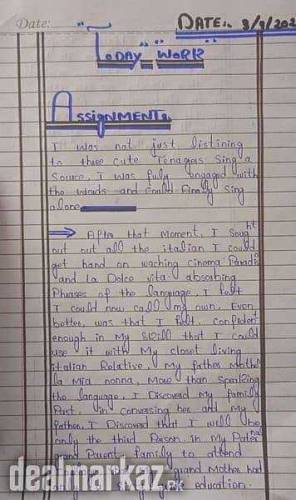 Date:
DATE:. 3/9/202
Today Work
Assignment:
I was not just listining
to these cute Tenagers Sing a
Source, I was fully engaged with
the words and could Finally Sing
alone
After that Moment, I Sought
out out all the italian I could
get hand on waching cinema Paradi
and La Dolce vita absorbing
Phrases of the language. I felt
I could now call my own. Even
better, was that I felt, confident
enough in My Skill that I could
use it with My closet living
italian Relative, My father's Mothe
la Mia nonna, More than speaking
the language, I Discoverd My family
Past, in conversing her and My
father, I Discoverd that I will be
only the third Person in My Pater
grand Parent family to attend
grand Mother had
education.
dealmarkaz